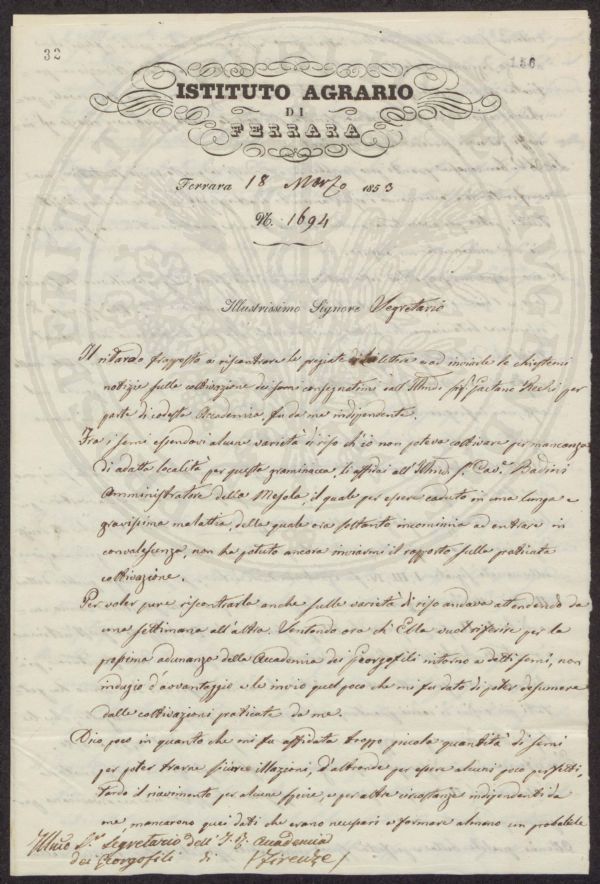 32
156
ISTITUTO AGRARIO
DI
FERRARA
Ferrara 18 Marzo 1853
N. 1694
Illustrissimo Signore Segretario
Il ritardo frapposto a riscontrare le pregiate lettere e ad inviarle le chiestemi
notizie sulla coltivazione dei semi consegnatimi dall'Illmo Gaetano per
parte di codesta Accademia, fu da me indipendente.
Tra i semi essendovi alcune varietà di riso ch'io non poteva coltivare per mancanza
di adatta località per questa graminacea, li affidai all'Illmo S. Cav.e Badini
Amministratore della Mesola, il quale per essere caduto in una lunga e
gravissima malattia, della quale ora soltanto incomincia ad entrare in
convalescenza, non ha potuto ancora inviarmi il rapporto sulla praticata
coltivazione.
Per voler pure riscontrarla anche sulle varietà di riso andava attendendo da
una settimana all'altra. Sentendo ora ch'Ella vuol riferire per la
prossima adunanza della Accademia dei Georgofili intorno a detti semi, non
indugio d'avvantaggio e le invio quel poco che mi fu dato di poter desumere
dalle coltivazioni praticate da me.
Dico poco in quanto che mi fu affidata troppo piccola quantità di semi
per poter trarne sicure illazioni, d'altronde per essere alcuni poco perfetti,
tardo il ricevimento per alcune specie, e per altre circostanze indipendenti da
me mancarono quei dati che erano necessari a formare almeno un probabile
Illmo S.r Segretario dell'I. R. Accademia
dei Georgofili di Firenze